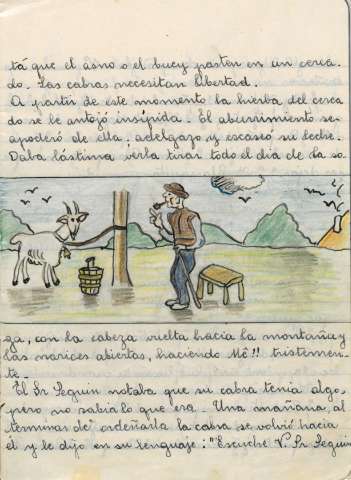 tá que el asno o el buey pasten en un cerca-
do. Las cabras necesitan libertad.
A partir de este momento la hierba del cerca
do se le antojó insípida. El aburrimiento se
apoderó de ella; adelgazo y escaseó su leche.
Daba lástima verla tirar todo el dia de la so-
ga, con la cabeza vuelta hacia la montaña y
las narices abiertas, haciendo Mê!! tristemen-
te.-
El Sr Seguin notaba que su cabra tenia algo,
pero no sabia lo que era. Una mañana, al
terminar de ordeñarla la cabra se volvió hacia
él y le dijo en su lenguaje: "Escuche V. Sr Seguin